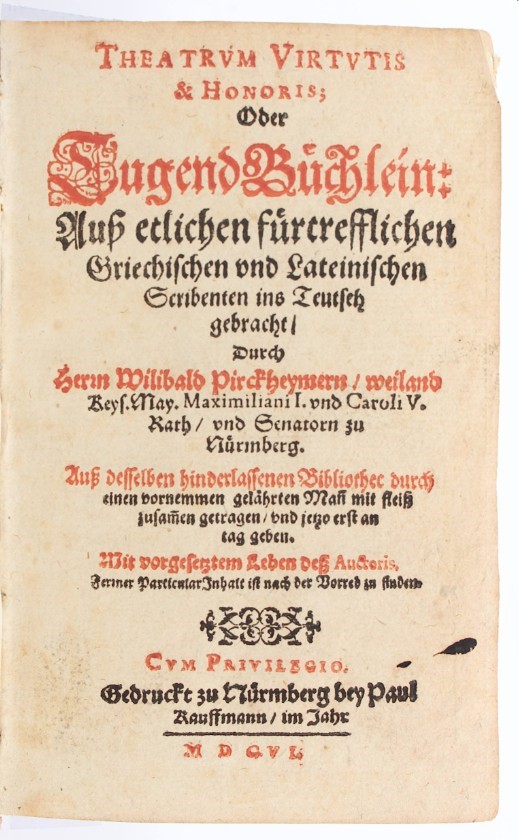 THEATRVM VIRTVTIS
& HONORIS;
Oder
Tugend Büchlein:
Auß etlichen fürtrefflichen
Griechischen vnd Lateinischen
Scribenten ins Teutsch
gebracht/
Durch
Herrn Wilibald Pirckheymern / weiland
Keys. May. Maximiliani I. vnd Caroli V.
Rath / vnd Senatorn zu
Nürmberg.
Auß desselben hinderlassenen Bibliothec durch
einen vornemmen gelährten Mañ mit fleiß
zusam̃en getragen / vnd jetzo erst an
tag geben.
Mit vorgesetztem Leben deß Auctoris,
Ferner Particular Inhalt ist nach der Vorred zu finden.
CVM PRIVILEGIO.
Gedruckt zu Nürmberg bey Paul
Kauffmann / im Jahr
M D CVI.